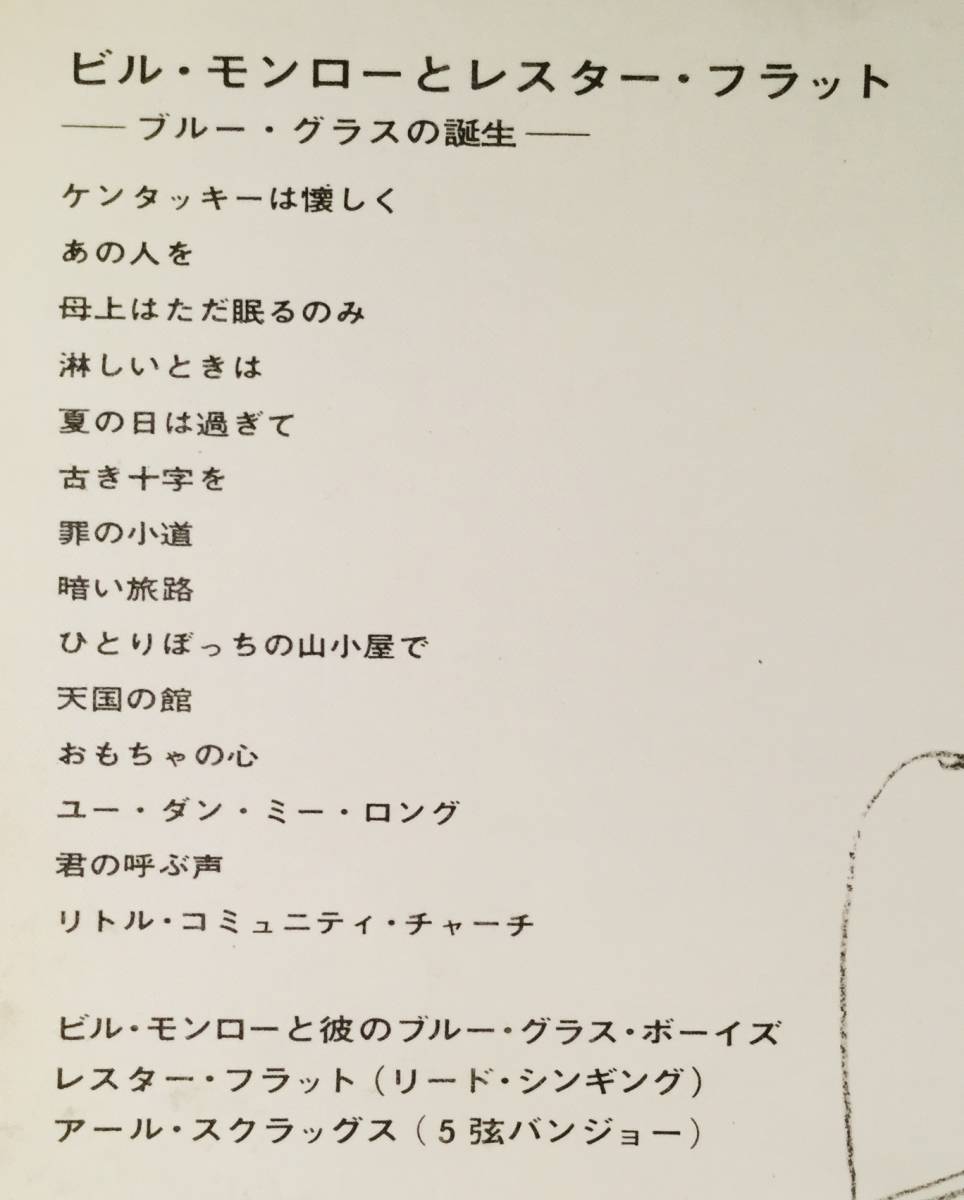 ビル・モンローとレスター・フラット
── ブルー・グラスの誕生 ──
ケンタッキーは懐しく
あの人を
母上はただ眠るのみ
淋しいときは
夏の日は過ぎて
古き十字を
罪の小道
暗い旅路
ひとりぼっちの山小屋で
天国の館
おもちゃの心
ユー・ダン・ミー・ロング
君の呼ぶ声
リトル・コミュニティ・チャーチ
ビル・モンローと彼のブルー・グラス・ボーイズ
レスター・フラット(リード・シンギング)
アール・スクラッグス(5弦バンジョー)